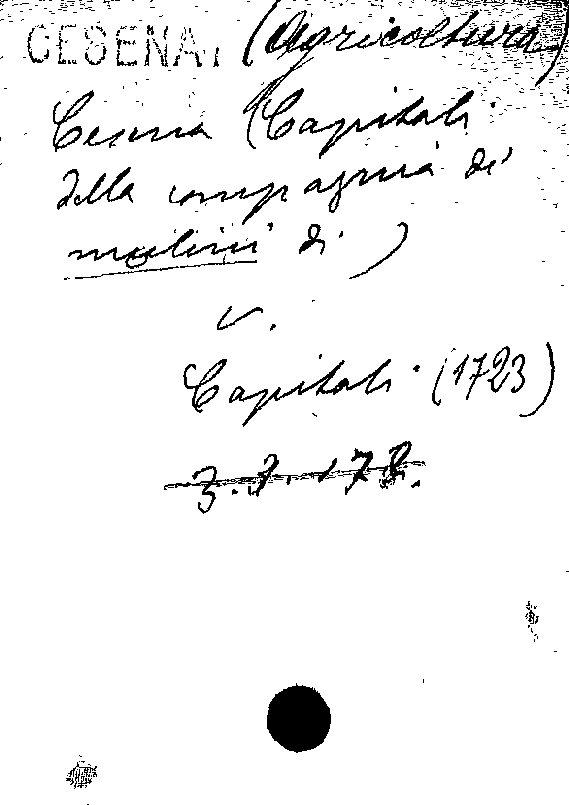 CESENA. (Agricoltura)
Cesena (Capitoli
della compagnia dei
mulini di )
v.
Capitoli (1723)
3.3.178.